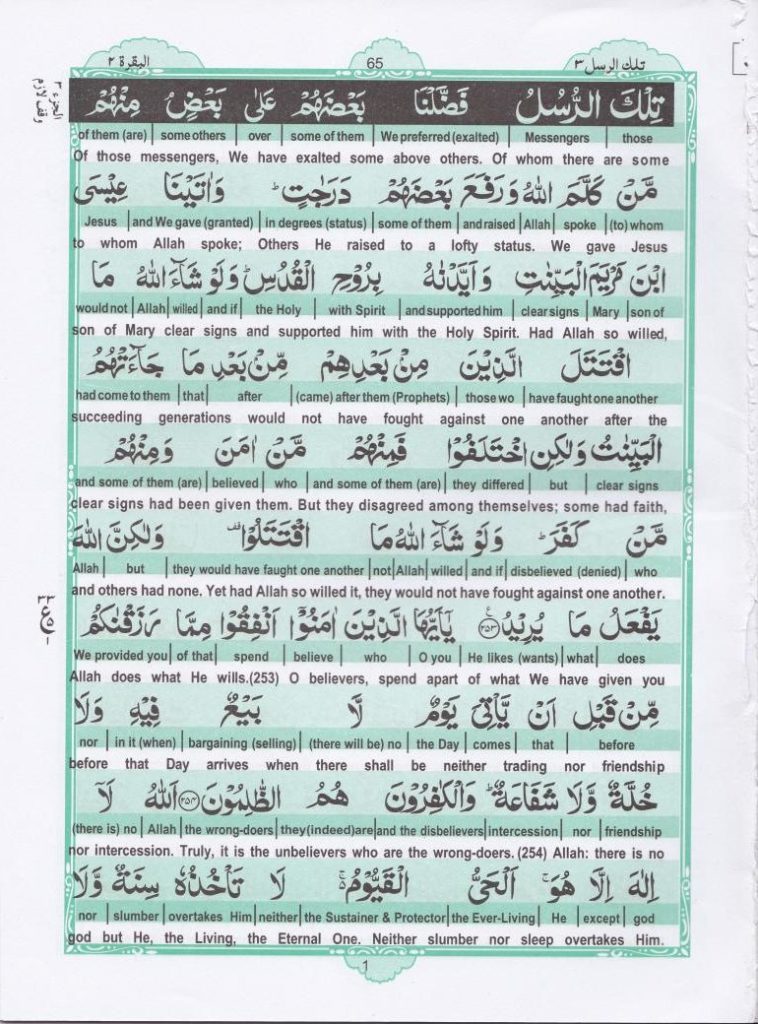 البقرة ٢ 65 تلك الرسل ٣
الجزء ٣
وقف لازم
تِلْكَ الرُّسُلُ فَضَّلْنَا بَعْضَهُمْ عَلٰى بَعْضٍ مِنْهُمْ
of them (are) | some others | over | some of them | We preferred (exalted) | Messengers | those
Of those messengers, We have exalted some above others. Of whom there are some
مَّنْ كَلَّمَ اللّٰهُ وَرَفَعَ بَعْضَهُمْ دَرَجٰتٍ ؕ وَاٰتَيْنَا عِيْسَى
Jesus | and We gave (granted) | in degrees (status) | some of them | and raised | Allah | spoke | (to) whom
to whom Allah spoke; Others He raised to a lofty status. We gave Jesus
ابْنَ مَرْيَمَ الْبَيِّنٰتِ وَاَيَّدْنٰهُ بِرُوْحِ الْقُدُسِ ؕ وَلَوْ شَآءَ اللّٰهُ مَا
would not | Allah | willed | and if | the Holy | with Spirit | and supported him | clear signs | Mary | son of
son of Mary clear signs and supported him with the Holy Spirit. Had Allah so willed,
اقْتَتَلَ الَّذِيْنَ مِنْۢ بَعْدِهِمْ مِّنْۢ بَعْدِ مَا جَآءَتْهُمُ
had come to them | that | after | (came) after them (Prophets) | those wo | have faught one another
succeeding generations would not have fought against one another after the
الْبَيِّنٰتُ وَلٰكِنِ اخْتَلَفُوْا فَمِنْهُمْ مَّنْ اٰمَنَ وَمِنْهُمْ
and some of them (are) | believed | who | and some of them (are) | they differed | but | clear signs
clear signs had been given them. But they disagreed among themselves; some had faith,
مَّنْ كَفَرَ ؕ وَلَوْ شَآءَ اللّٰهُ مَا اقْتَتَلُوْا ۫ وَلٰكِنَّ اللّٰهَ
Allah | but | they would have faught one another | not | Allah | willed | and if | disbelieved (denied) | who
and others had none. Yet had Allah so willed it, they would not have fought against one another.
يَفْعَلُ مَا يُرِيْدُ ﴿۲۵۳﴾ يٰٓاَيُّهَا الَّذِيْنَ اٰمَنُوْٓا اَنْفِقُوْا مِمَّا رَزَقْنٰكُمْ
We provided you | of that | spend | believe | who | O you | He likes (wants) | what | does
Allah does what He wills.(253) O believers, spend apart of what We have given you
مِّنْ قَبْلِ اَنْ يَّاْتِيَ يَوْمٌ لَّا بَيْعٌ فِيْهِ وَلَا
nor | in it (when) | bargaining (selling) | (there will be) no | the Day | comes | that | before
before that Day arrives when there shall be neither trading nor friendship
خُلَّةٌ وَّلَا شَفَاعَةٌ ؕ وَالْكٰفِرُوْنَ هُمُ الظّٰلِمُوْنَ ﴿۲۵۴﴾ اَللّٰهُ لَآ
(there is) no | Allah | the wrong-doers | they(indeed)are | and the disbelievers | intercession | nor | friendship
nor intercession. Truly, it is the unbelievers who are the wrong-doers. (254) Allah: there is no
اِلٰهَ اِلَّا هُوَ ۚ اَلْحَيُّ الْقَيُّوْمُ ۚ لَا تَاْخُذُهٗ سِنَةٌ وَّلَا
nor | slumber | overtakes Him | neither | the Sustainer & Protector | the Ever-Living | He | except | god
god but He, the Living, the Eternal One. Neither slumber nor sleep overtakes Him.
1